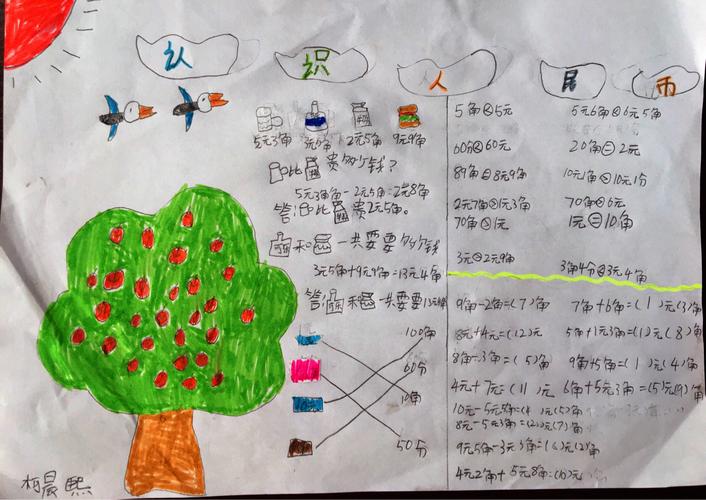 认识人民币
5元3角 2元5角 9元9角
比 贵多少钱?
5元3角-2元5角=2元8角
答: 比 贵2元5角。
和 一共要要多少钱
3元5角+9元9角=13元4角
答: 和 一共要要13元4角
100角
60分
10角
50分
柯晨熙
5角<5元
60分<60元
89角=8元9角
2元7角>1元3角
70角>1元
3元>2元9角
5元6角<6元5角
20角=2元
10元1角>10元1分
70角>6元
1元=10角
3角4分<3元4角
9角-2角=(7)角
8元+4元=(12)元
8角-3角=(5)角
4元+7元=(11)元
10元-5元5角=(4)元(5)角
8元-5元3角=(2)元(7)角
9元5角-3元3角=(6)元(2)角
4元2角+5元8角=(10)元
7角+6角=(1)元(3)角
5角+1元3角=(1)元(8)角
9角+5角=(1)元(4)角
6角+5元3角=(5)元(9)角